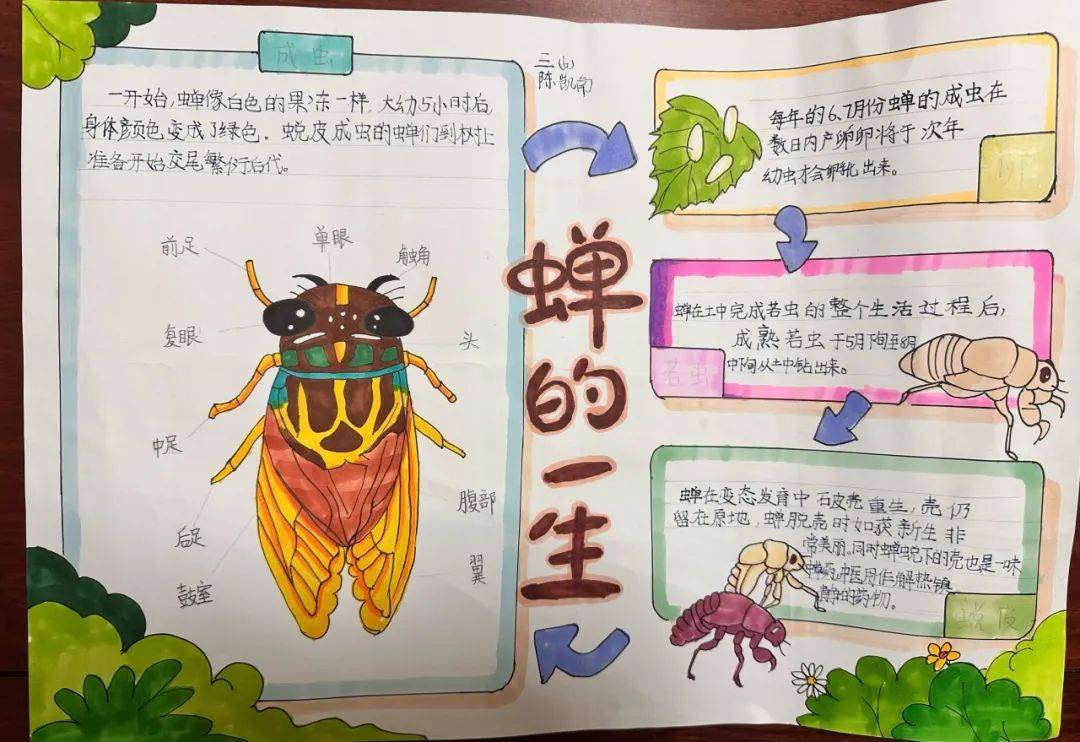 成虫
一开始,蝉像白色的果冻一样,大约5小时后,
身体颜色变成了绿色。蜕皮成虫的蝉们到树上
准备开始交尾繁衍后代。
前足
单眼
触角
复眼
头
中足
腹部
后足
翼
鼓室
三
陈凯
蝉的一生
每年的6、7月份蝉的成虫在
数日内产卵卵将于次年
幼虫才会孵化出来。
卵
蝉在土中完成若虫的整个生活过程后,
成熟若虫于5月下旬至8月
中下旬从土中钻出来。
若虫
蝉在变态发育中破壳重生,壳仍
留在原地,蝉脱壳时如获新生非
常美丽。同时蝉蜕下的壳也是一味
中医用作解热镇
静的药物。
蜕皮